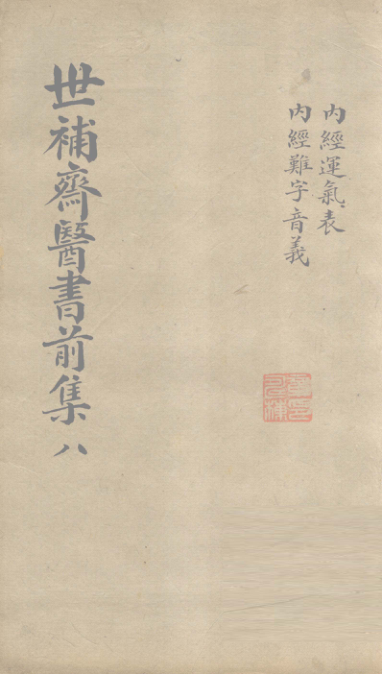 內經運氣表
內經難字音義
世補齋醫書前集 八